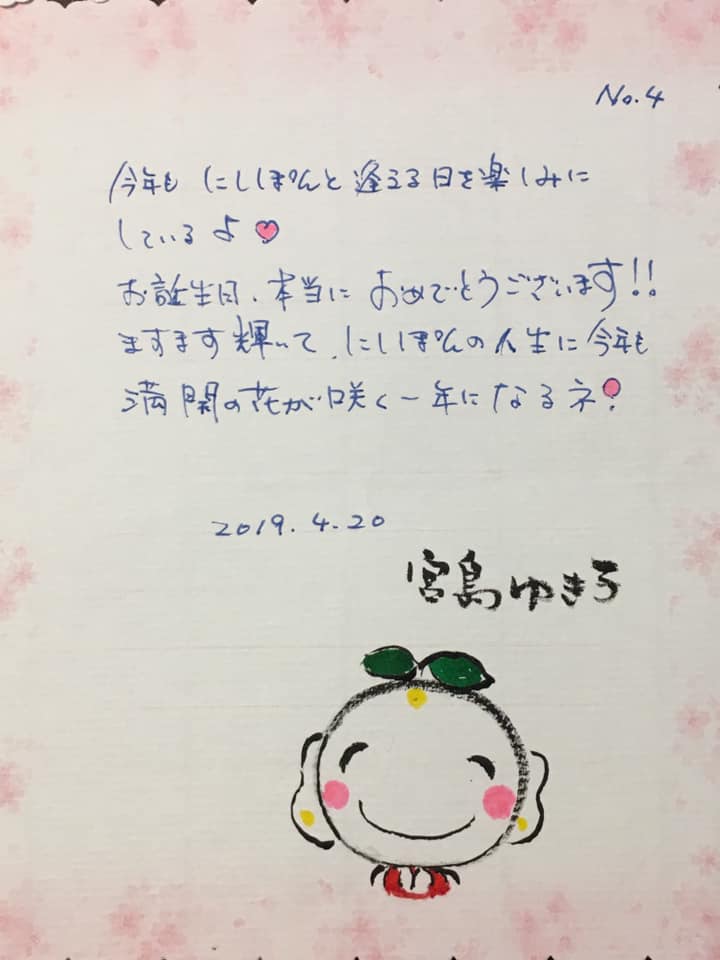 No.4
今年も にしぽんと逢える日を楽しみに
しているよ
お誕生日、本当に おめでとうございます!!
ますます輝いて、にしぽんの人生に今年も
満開の花が咲く一年になるネ!
2019.4.20
宮島ゆき子